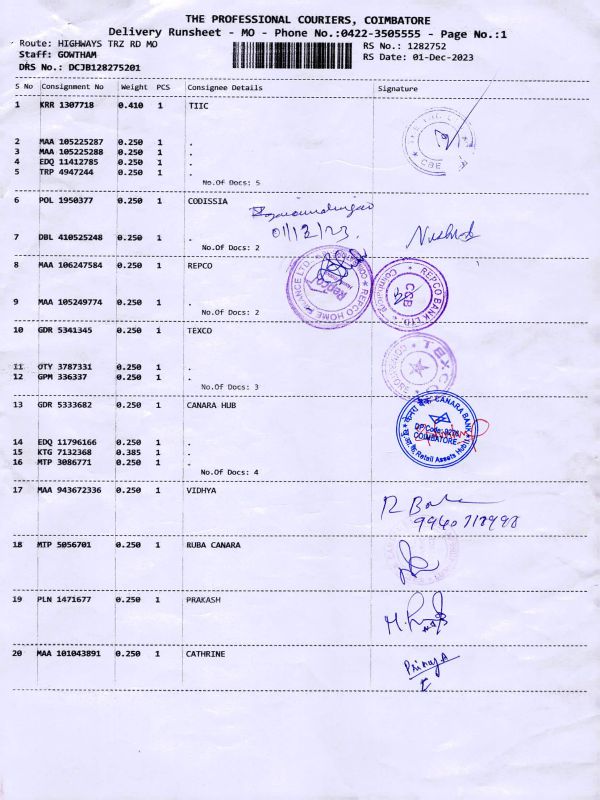 THE PROFESSIONAL COURIERS, COIMBATORE
Delivery Runsheet - MO - Phone No.:0422-3505555 - Page No.:1
Route: HIGHWAYS TRZ RD MO
RS No.: 1282752
Staff: GOWTHAM
RS Date: 01-Dec-2023
DRS No.: DCJB128275201
S No Consignment No Weight PCS Consignee Details Signature
1 KRR 1307718 0.410 1 TIIC
2 MAA 105225287 0.250 1 .
3 MAA 105225288 0.250 1 .
4 EDQ 11412785 0.250 1 .
5 TRP 4947244 0.250 1 .
No.Of Docs: 5
CBE
6 POL 1950377 0.250 1 CODISSIA
01/12/23
7 DBL 410525248 0.250 1 .
No.Of Docs: 2
8 MAA 106247584 0.250 1 REPCO
REPCO HOME FINANCE LTD
Repco
REPCO BANK LTD
9 MAA 105249774 0.250 1 .
No.Of Docs: 2
10 GDR 5341345 0.250 1 TEXCO
11 OTY 3787331 0.250 1 .
12 GPM 336337 0.250 1 .
No.Of Docs: 3
13 GDR 5333682 0.250 1 CANARA HUB
केनरा बैंक CANARA BANK
DP Code:
COIMBATORE
Retail Assets Hub
14 EDQ 11796166 0.250 1 .
15 KTG 7132368 0.385 1 .
16 MTP 3086771 0.250 1 .
No.Of Docs: 4
17 MAA 943672336 0.250 1 VIDHYA
18 MTP 5056701 0.250 1 RUBA CANARA
19 PLN 1471677 0.250 1 PRAKASH
20 MAA 101043891 0.250 1 CATHRINE